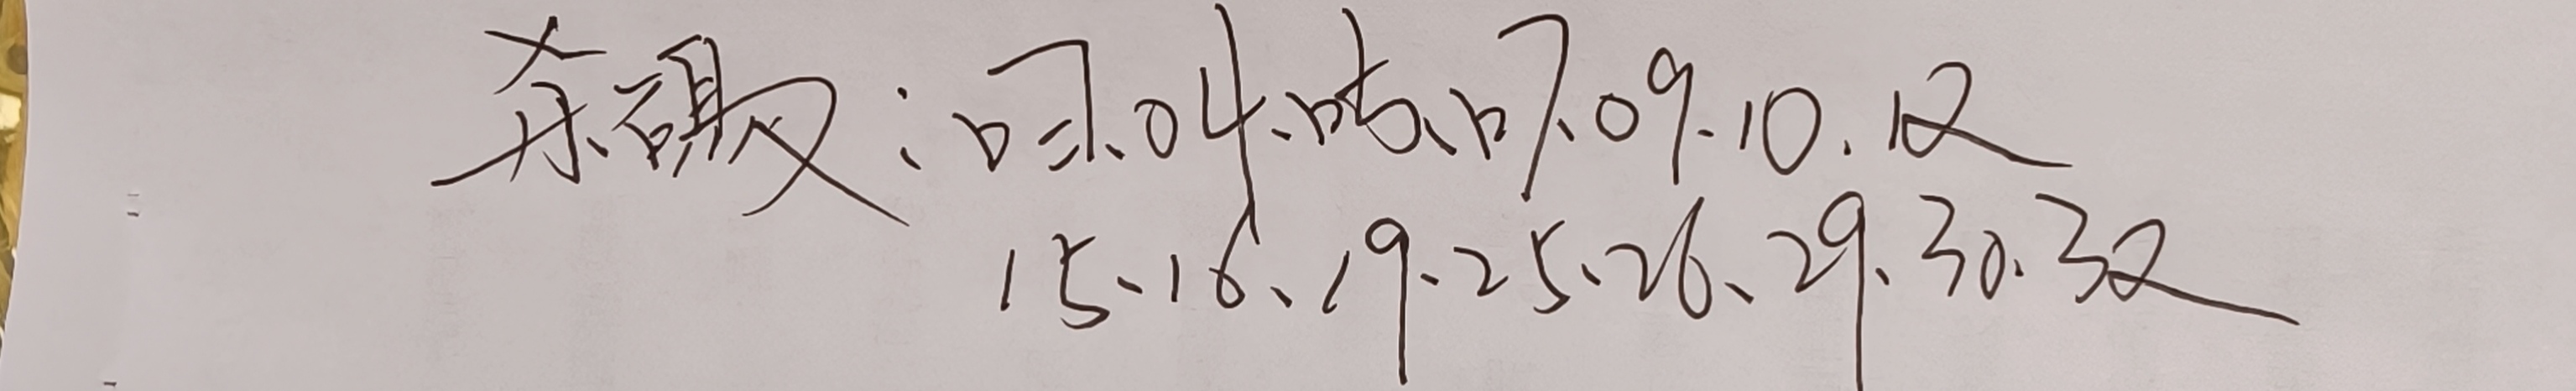 杀码：03.04.05.07.09.10.12
15.16.19.25.26.29.30.32